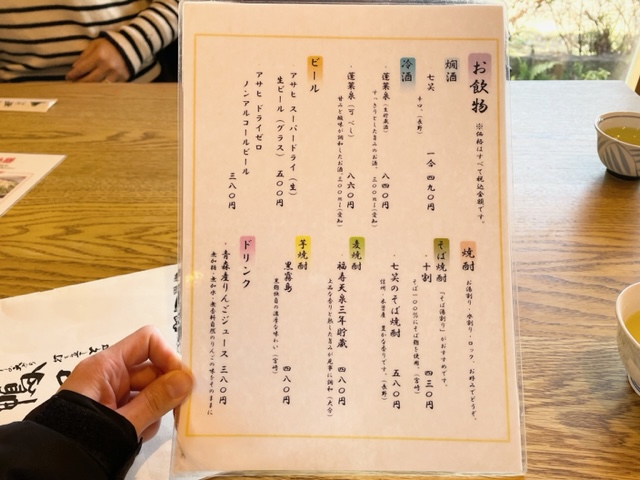 お飲物
※価格はすべて税込金額です。
燗酒
七笑
辛口。(長野)
一合 四九〇円
冷酒
・蓬莱泉(生貯蔵酒)
八四〇円
すっきりとした旨みのお酒。三〇〇ml(愛知)
・蓬莱泉(可。べし)
八六〇円
甘みと酸味が調和したお酒。三〇〇ml(愛知)
ビール
アサヒ スーパードライ(生)
生ビール(グラス) 五〇〇円
アサヒ ドライゼロ
ノンアルコールビール
三八〇円
焼酎
お湯割り・水割り・ロック、お好みでどうぞ。
そば焼酎
「そば湯割り」がおすすめです。
・十割
四三〇円
そば一〇〇%にそば麹を使用。(宮崎)
・七笑のそば焼酎
五八〇円
信州・木曽産 豊かな香りです。(長野)
麦焼酎
・福寿天泉三年貯蔵
四八〇円
上品な香りと熟した旨みが見事に調和(大分)
芋焼酎
・黒霧島
四八〇円
黒麹独自の濃厚な味わい。(宮崎)
ドリンク
・青森産りんごジュース 三八〇円
無加糖・無加水・無香料自然のりんごの味をそのままに